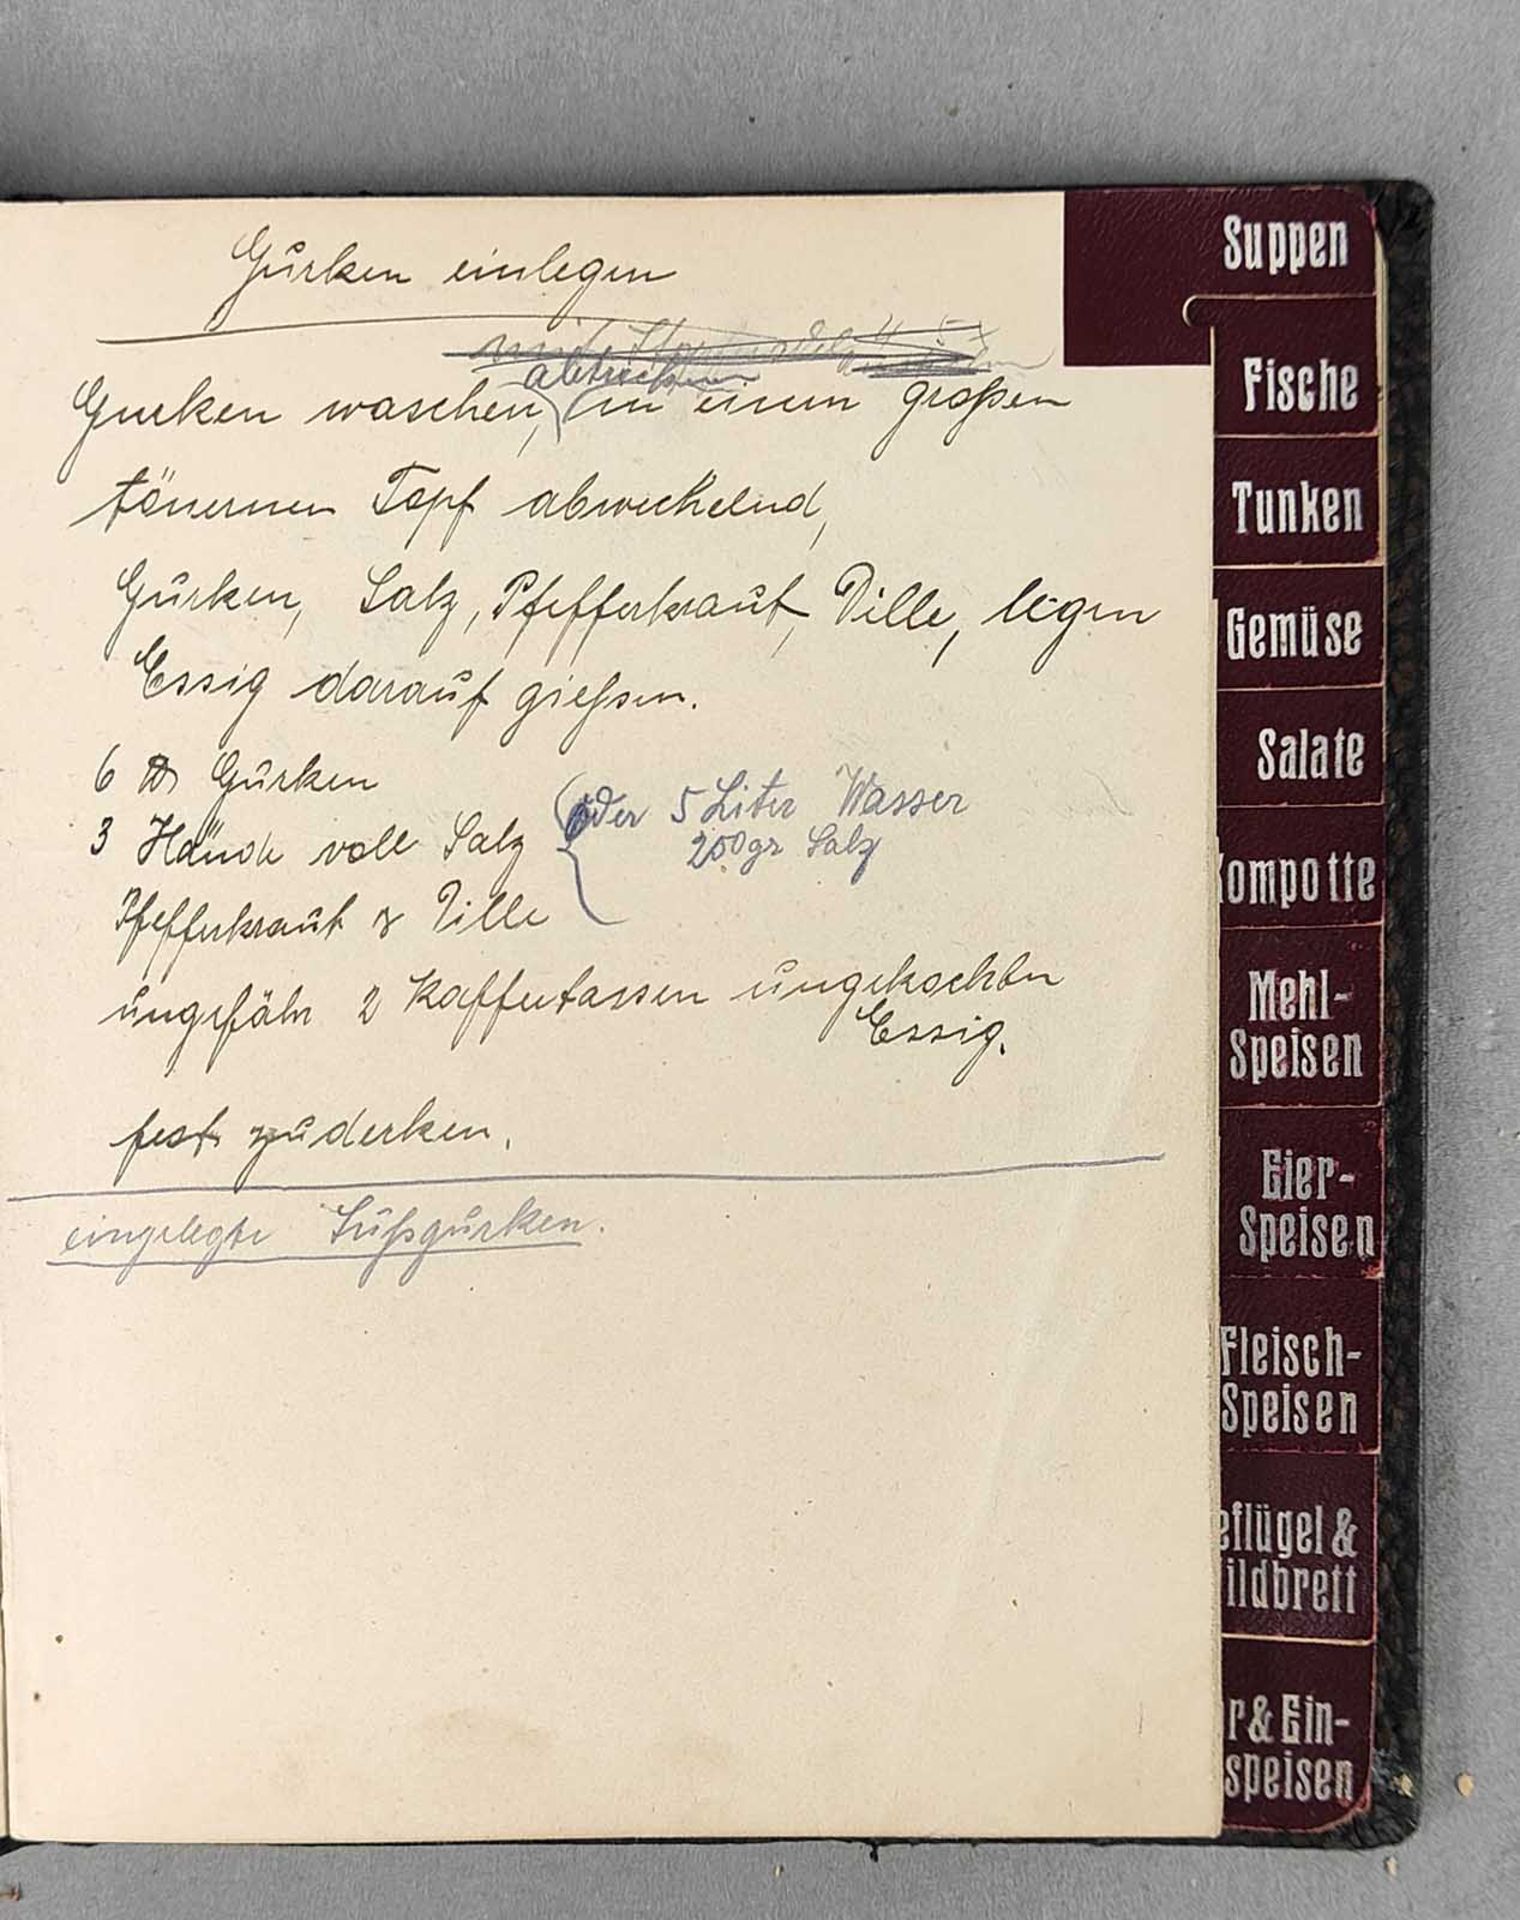 Gurken einlegen
abtrocknen
Gurken waschen, in einem großen
tönernen Topf abwechelnd,
Gurken, Salz, Pfefferkraut, Dille, legen
Essig darauf gießen.
6 ℔ Gurken
3 Hände voll Salz
(oder 5 Liter Wasser
250gr Salz
Pfefferkraut & Dille
ungefähr 2 Kaffeetassen ungekochten
Essig.
fest zudecken.
eingelegte Süßgurken.
Suppen
Fische
Tunken
Gemüse
Salate
ompotte
Mehl-
Speisen
Eier-
Speisen
Fleisch-
Speisen
eflügel &
ildbrett
r & Ein-
speisen